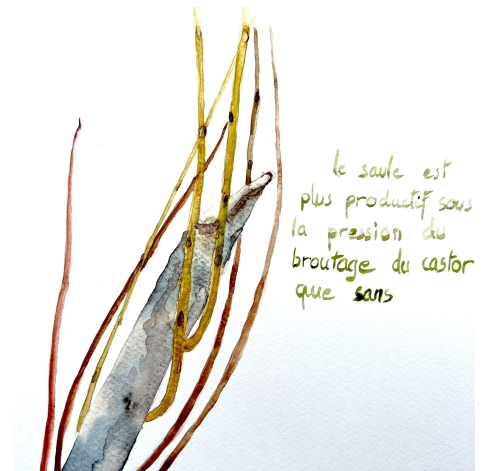 le saule est
plus productif sous
la pression du
broutage du castor
que sans